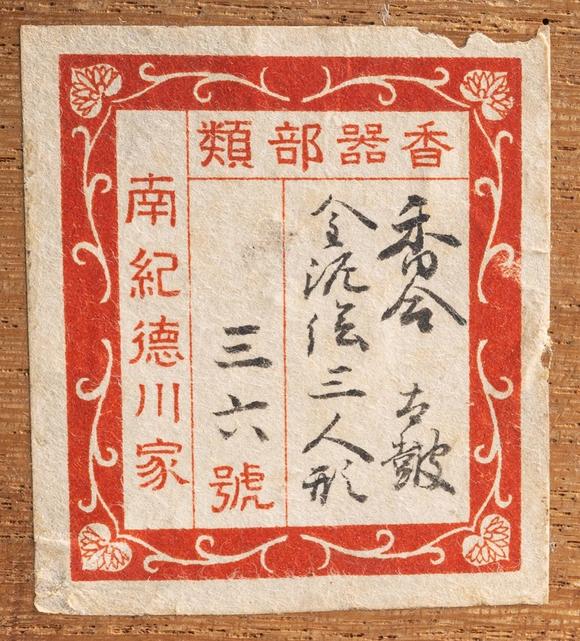 香器部類
香合 皷
金泥絵三人形
三六號
南紀德川家